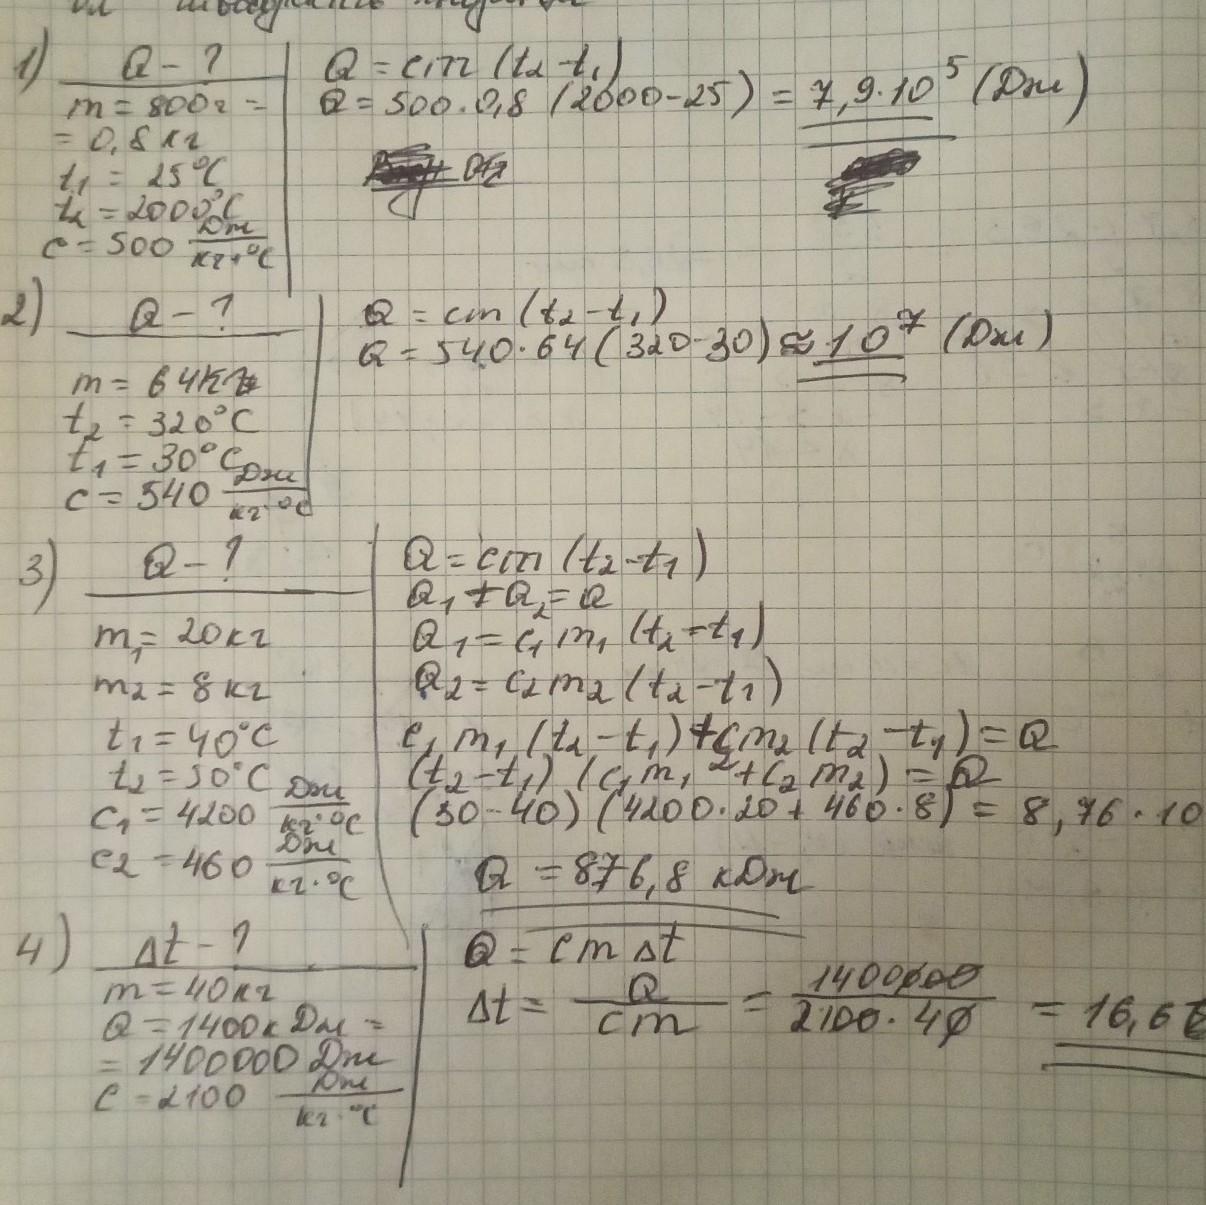 1) Q - ?
m = 800г =
= 0,8 кг
t₁ = 25°C
t₂ = 2000°C
c = 500 Дж/кг·°C
Q = cm (t₂ - t₁)
Q = 500 · 0,8 (2000 - 25) = 7,9 · 10⁵ (Дж)
2) Q - ?
m = 64кг
t₂ = 320°C
t₁ = 30°C
c = 540 Дж/кг·°C
Q = cm (t₂ - t₁)
Q = 540 · 64 (320 - 30) ≈ 10⁷ (Дж)
3) Q - ?
m₁ = 20кг
m₂ = 8 кг
t₁ = 40°C
t₂ = 30°C
c₁ = 4200 Дж/кг·°C
c₂ = 460 Дж/кг·°C
Q = cm (t₂ - t₁)
Q₁ + Q₂ = Q
Q₁ = c₁ m₁ (t₂ - t₁)
Q₂ = c₂ m₂ (t₂ - t₁)
c₁ m₁ (t₂ - t₁) + c₂ m₂ (t₂ - t₁) = Q
(t₂ - t₁) (c₁ m₁ + c₂ m₂) = Q
(30 - 40) (4200 · 20 + 460 · 8) = 8,76 · 10
Q = 876,8 кДж
4) Δt - ?
m = 40кг
Q = 1400 кДж =
= 1400000 Дж
c = 2100 Дж/кг·°C
Q = cm Δt
Δt = Q/cm = 1400000/2100 · 40 = 16,6